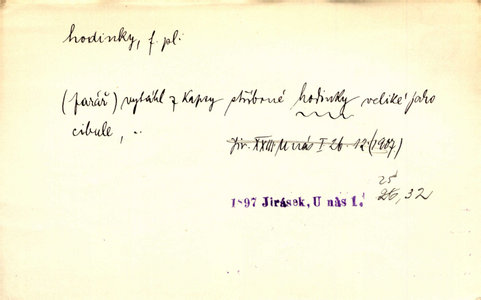 hodinky, f. pl.
(farář) vytáhl z kapsy stříbrné hodinky veliké jako
cibule, ..
Jir. XXIII U nás I 26. 12. (1907)
25
1897 Jirásek, U nás I. 26, 32